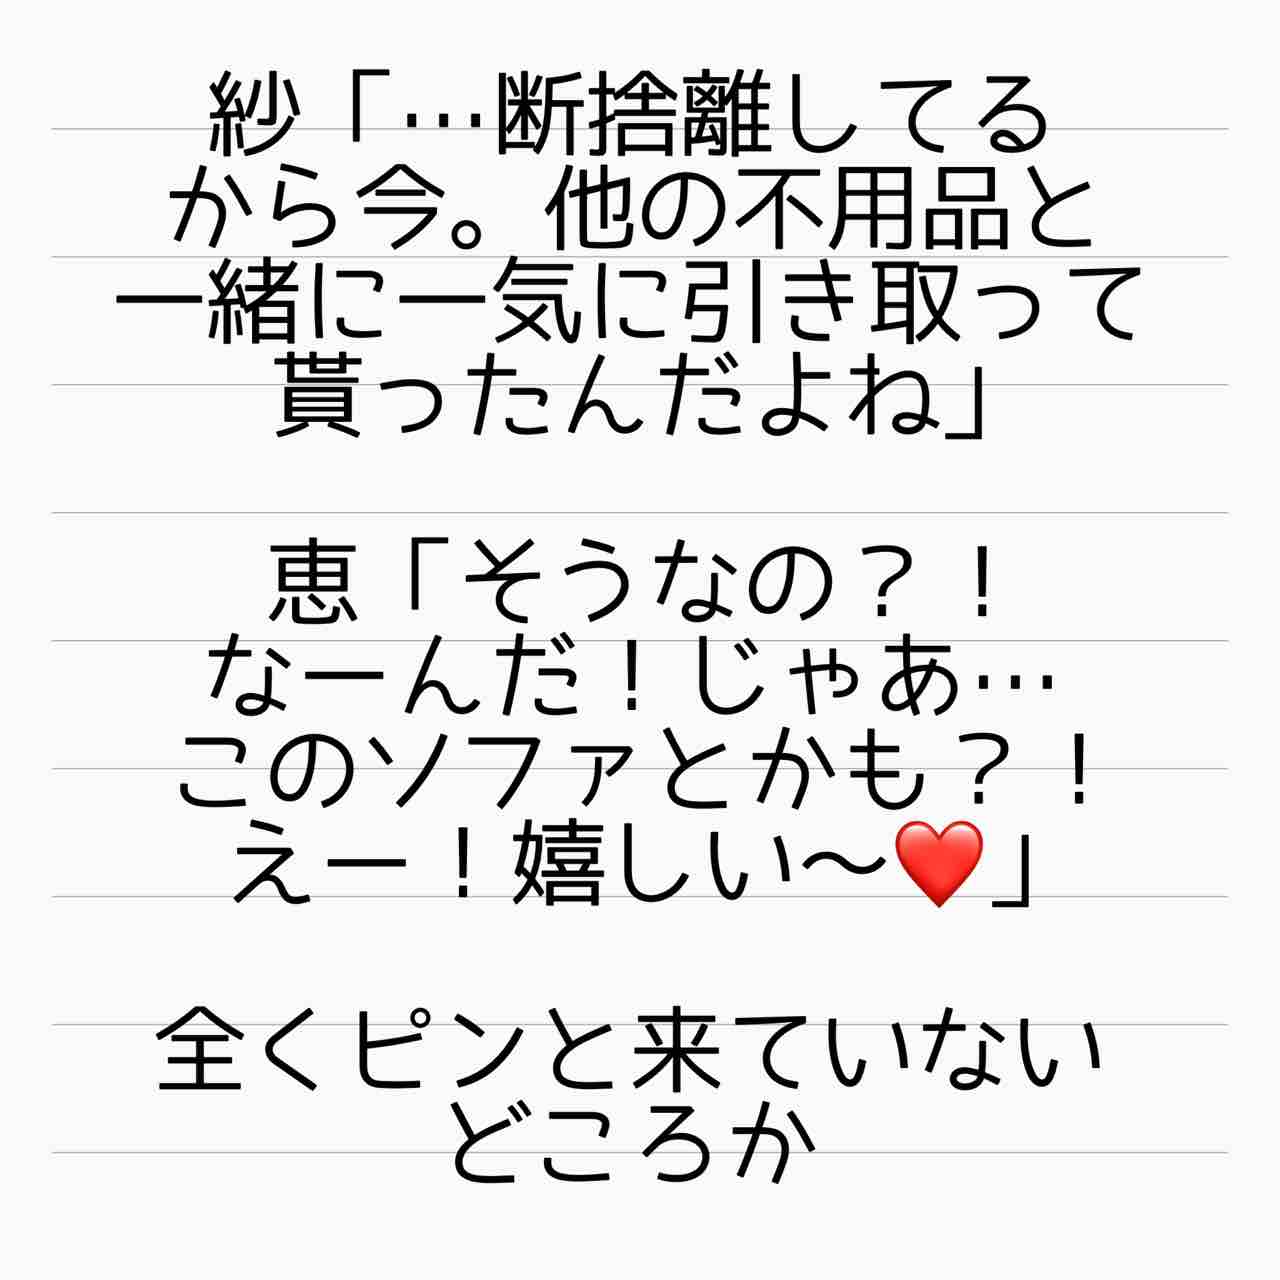 紗「…断捨離してる
から今。他の不用品と
一緒に一気に引き取って
貰ったんだよね」
恵「そうなの？！
なーんだ！じゃあ…
このソファとかも？！
えー！嬉しい〜❤️」
全くピンと来ていない
どころか